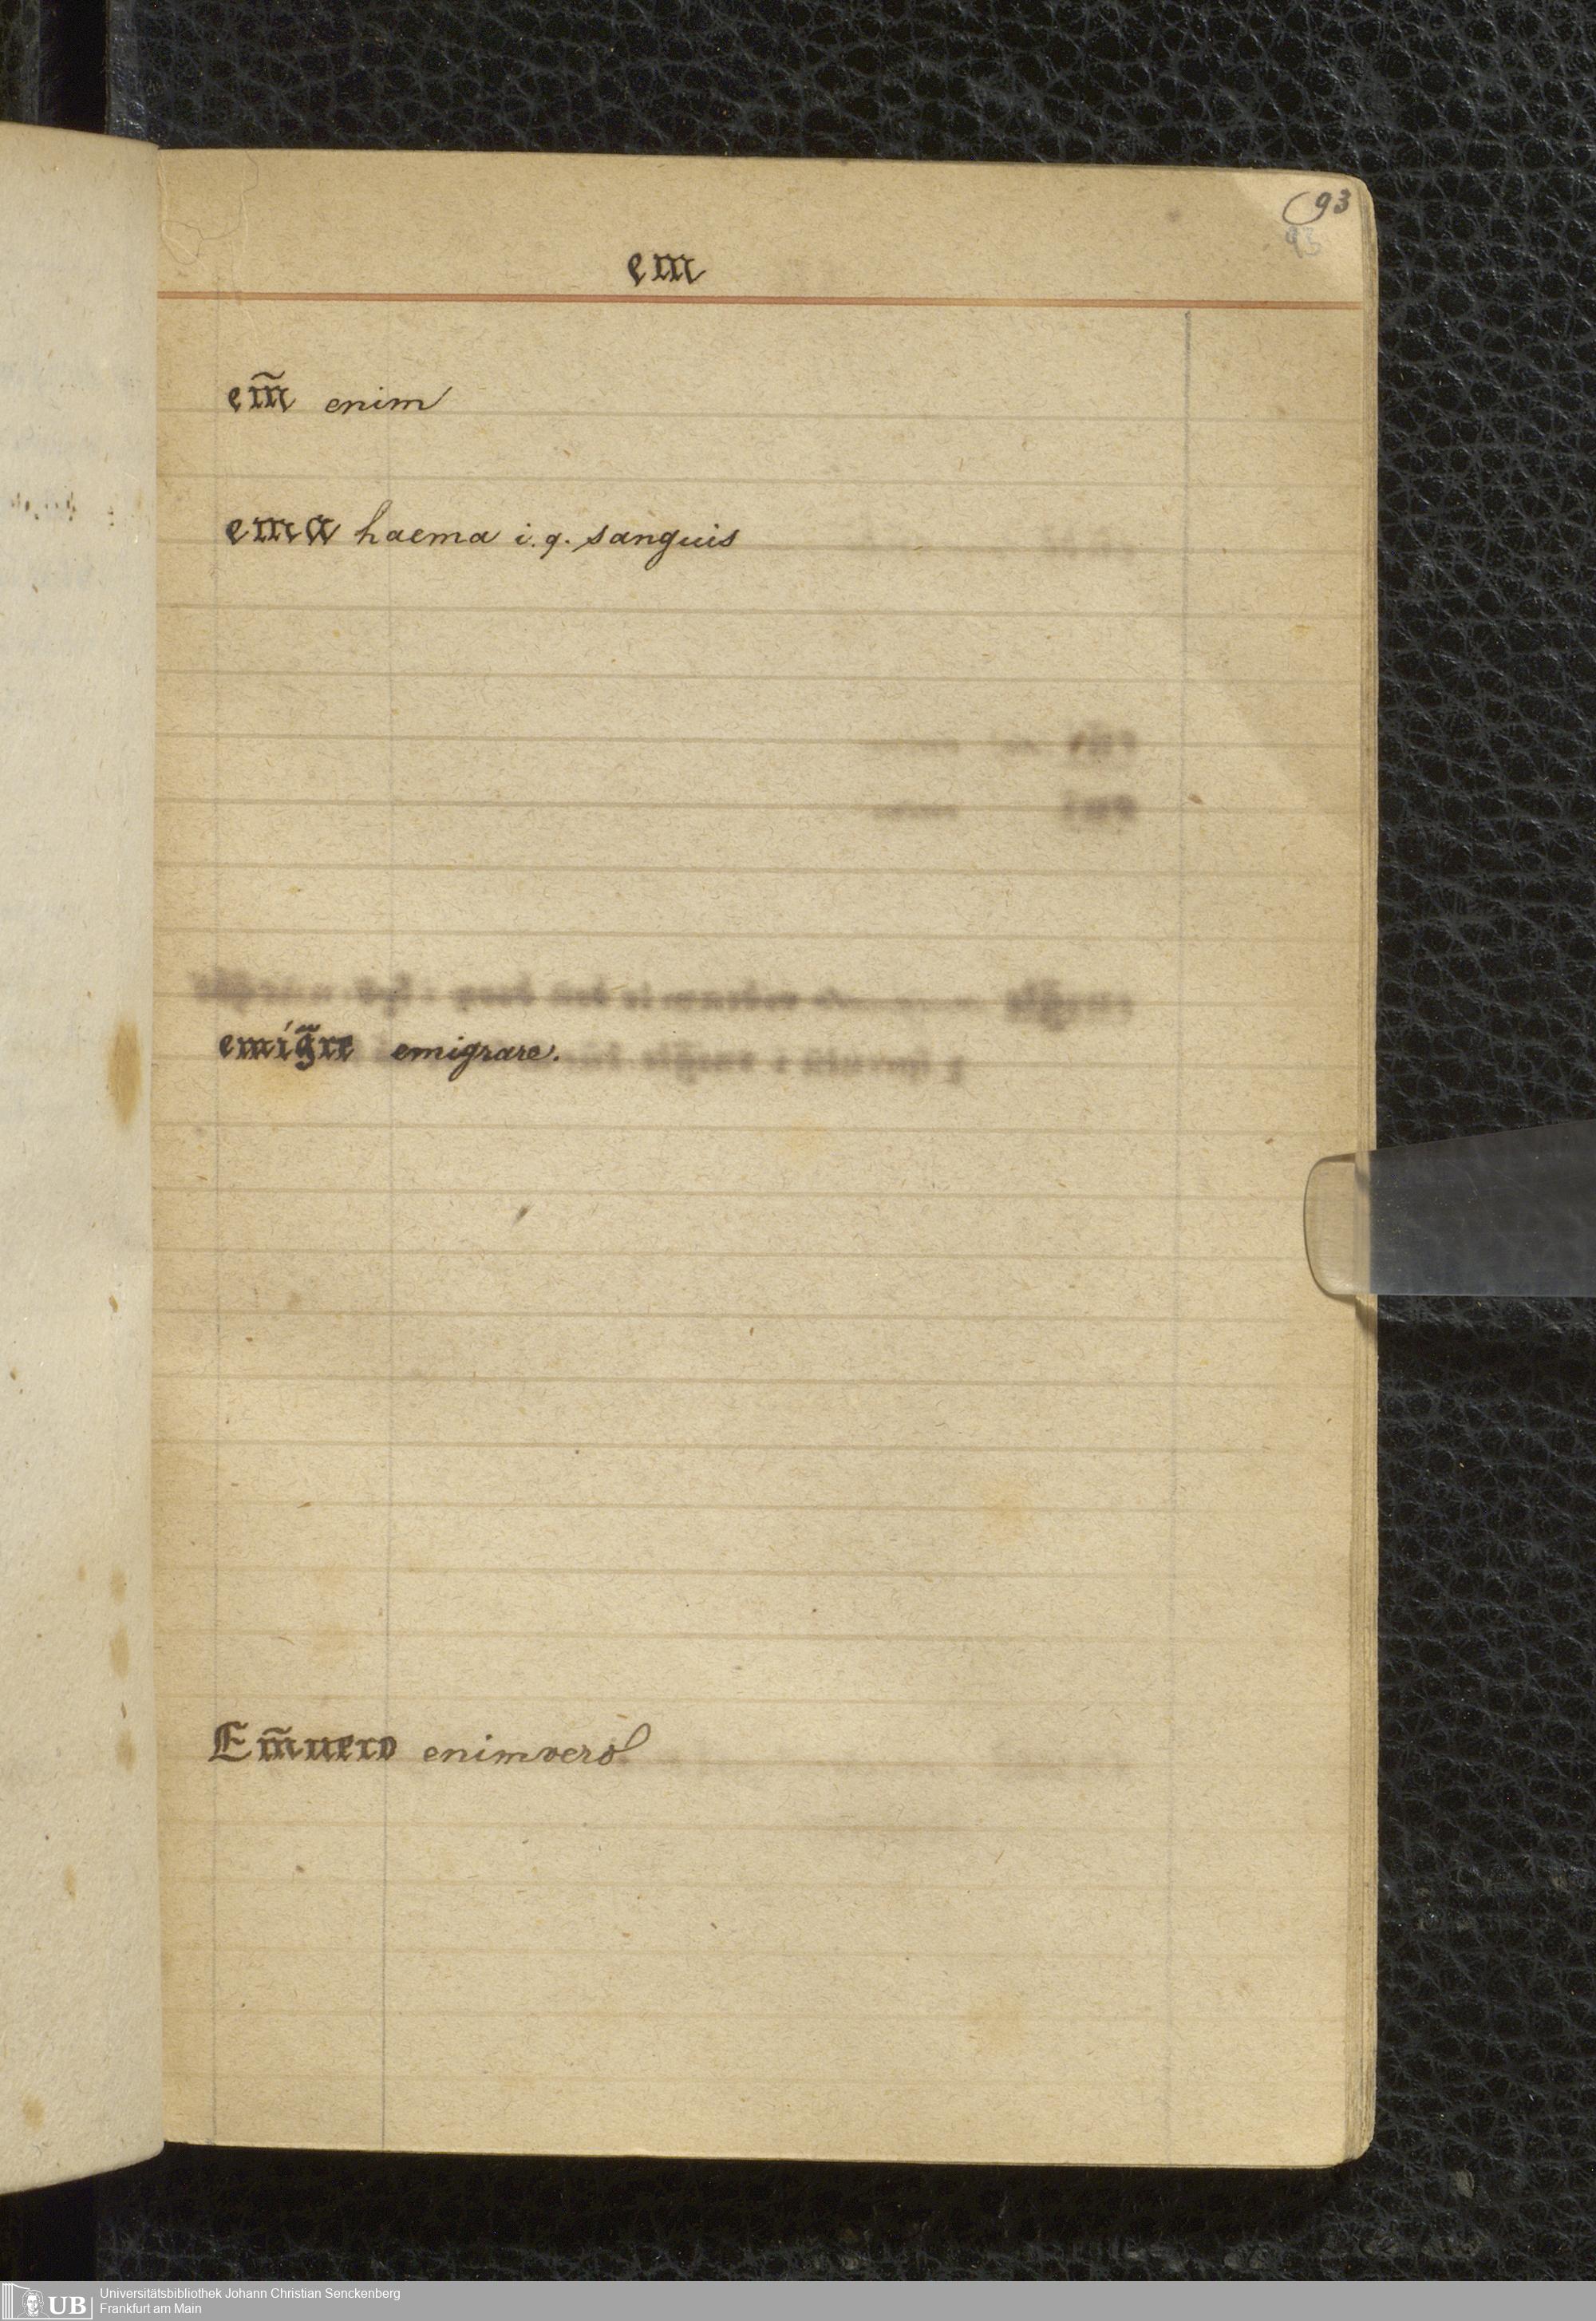 93
93
em
em̃ enim
ema haema i. q. sanguis
emig̃re emigrare.
Em̃uero enimvero
UB Universitätsbibliothek Johann Christian Senckenberg
Frankfurt am Main